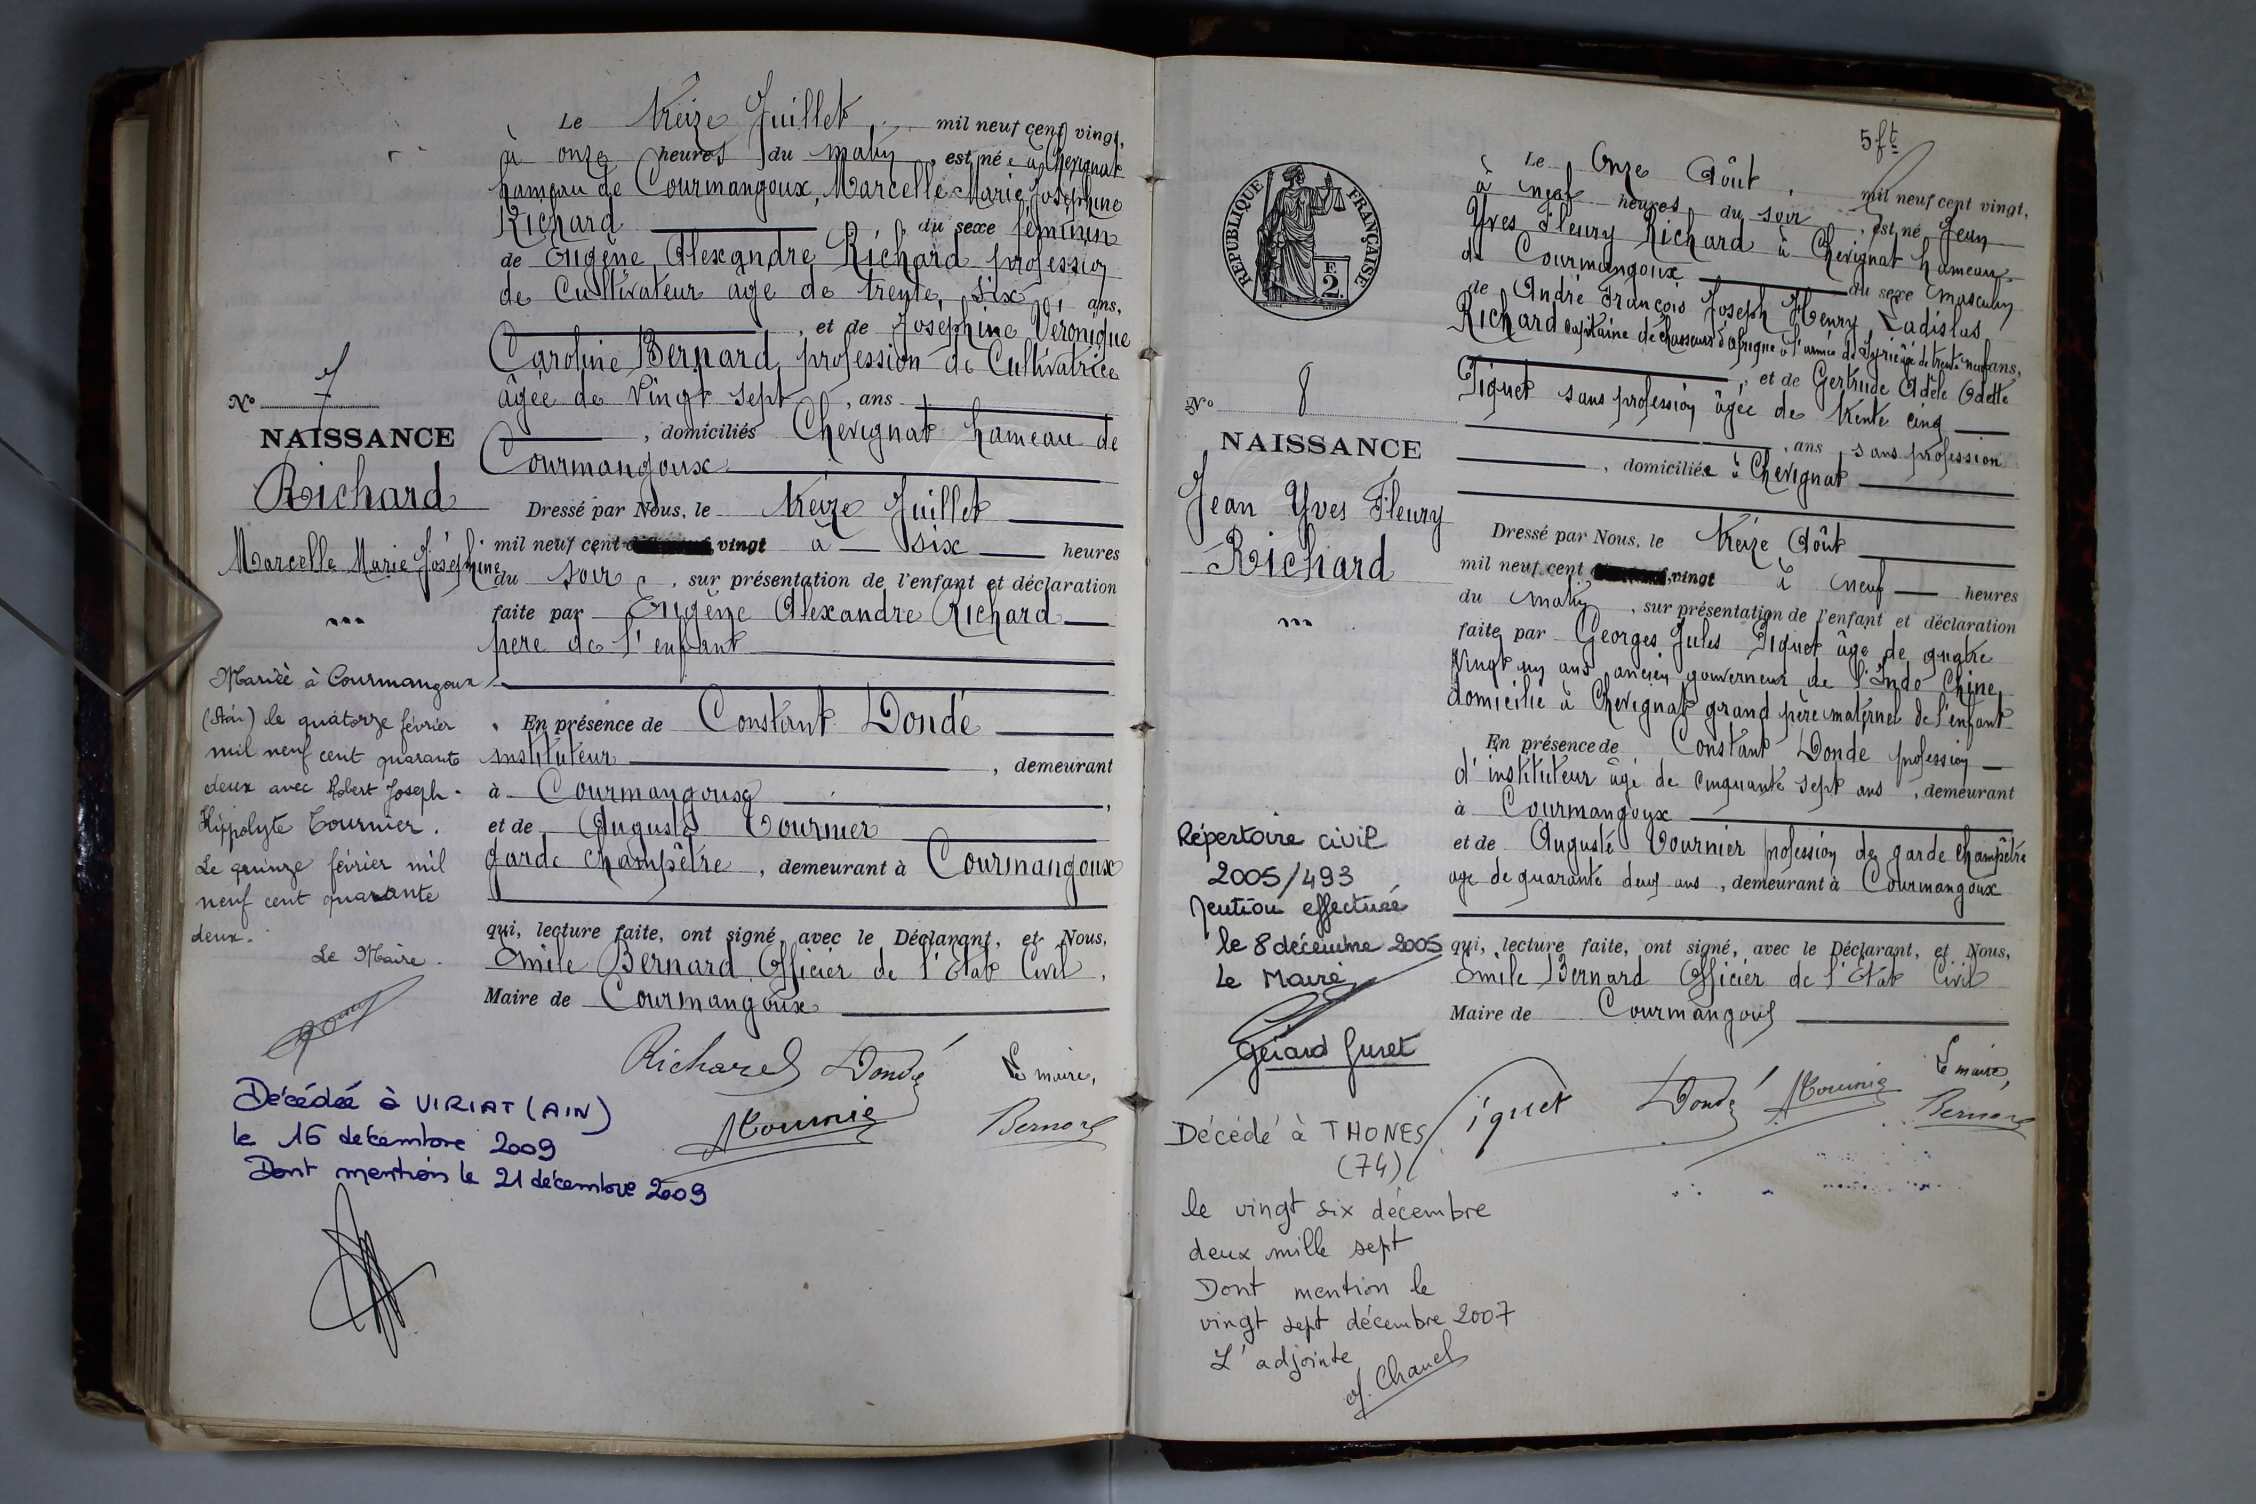 Le Treize Juillet, mil neuf cent vingt,
à onze heures du matin, est née à Chevignat
hameau de Courmangoux, Marcelle Marie Joséphine
Richard, du sexe féminin
de Eugène Alexandre Richard profession
de Cultivateur age de trente six ans,
, et de Joséphine Véronique
Caroline Bernard profession de Cultivatrice
âgée de Vingt sept, ans
, domiciliés Chevignat hameau de
Courmangoux
N° 7
NAISSANCE
Richard
Marcelle Marie Joséphine
Dressé par Nous, le Treize Juillet
mil neuf cent vingt à six heures
du soir, sur présentation de l'enfant et déclaration
faite par Eugène Alexandre Richard
père de l'enfant
En présence de Constant Dondé
instituteur, demeurant
à Courmangoux,
et de Auguste Tournier
garde champêtre, demeurant à Courmangoux
qui, lecture faite, ont signé avec le Déclarant, et Nous,
Emile Bernard Officier de l'Etat Civil,
Maire de Courmangoux
Richard Dondé Le maire,
ATournier Bernard
Mariée à Courmangoux
(Ain) le quatorze février
mil neuf cent quarante
deux avec Robert Joseph
Hippolyte Tournier.
Le quinze février mil
neuf cent quarante
deux.
Le Maire.
Décédée à VIRIAT (AIN)
le 16 décembre 2009
Dont mention le 21 décembre 2009
5 ft
Le Onze Août, mil neuf cent vingt,
à neuf heures du soir, est né Jean
Yves Fleury Richard à Chevignat hameau
de Courmangoux du sexe masculin
de André François Joseph Henry Ladislas
Richard capitaine de chasseurs d'afrique à l'armée de Syrie âgé de trente neuf ans,
, et de Gertrude Adèle Odette
Piquet sans profession âgée de trente cinq
, ans sans profession
, domiciliée à Chevignat
RÉPUBLIQUE FRANÇAISE
F.
2.
N° 8
NAISSANCE
Jean Yves Fleury
Richard
Dressé par Nous, le Treize Août
mil neuf cent vingt à neuf heures
du matin, sur présentation de l'enfant et déclaration
faite par Georges Jules Piquet âge de quatre
Vingt un ans ancien gouverneur de l'Indo Chine
domicilié à Chevignat grand père maternel de l'enfant
En présence de Constant Donde profession
d'instituteur âgé de cinquante sept ans, demeurant
à Courmangoux
et de Auguste Tournier profession de garde champêtre
age de quarante deux ans, demeurant à Courmangoux
qui, lecture faite, ont signé, avec le Déclarant, et Nous,
Emile Bernard Officier de l'Etat Civil
Maire de Courmangoux
Piquet Dondé ATournier Le maire,
Bernard
Répertoire civil
2005/493
Mention effectuée
le 8 décembre 2005
Le Maire
Gérard Guret
Décédé à THONES
(74)
le vingt six décembre
deux mille sept
Dont mention le
vingt sept décembre 2007
L'adjointe
Chanel